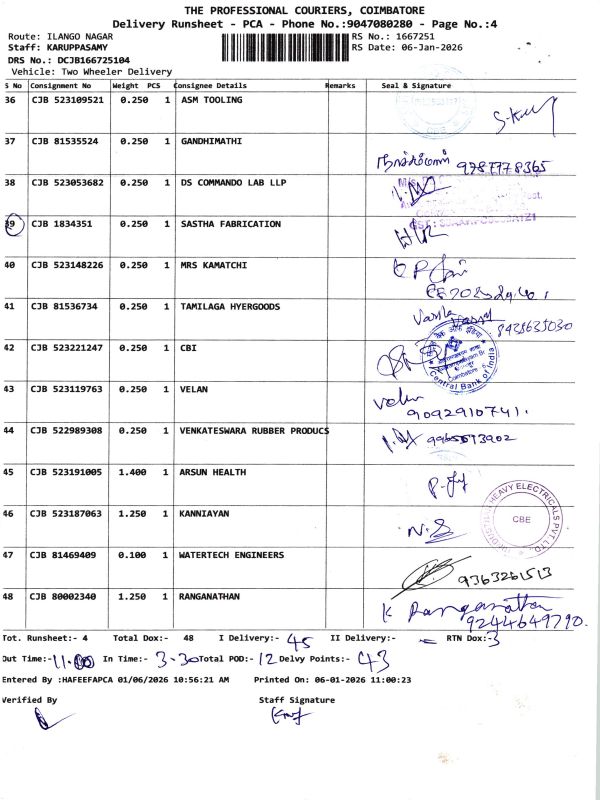 THE PROFESSIONAL COURIERS, COIMBATORE
Delivery Runsheet - PCA - Phone No.:9047080280 - Page No.:4
Route: ILANGO NAGAR
RS No.: 1667251
Staff: KARUPPASAMY
RS Date: 06-Jan-2026
DRS No.: DCJB166725104
Vehicle: Two Wheeler Delivery
S No Consignment No Weight PCS Consignee Details Remarks Seal & Signature
36 CJB 523109521 0.250 1 ASM TOOLING
37 CJB 81535524 0.250 1 GANDHIMATHI
9787778365
38 CJB 523053682 0.250 1 DS COMMANDO LAB LLP
39 CJB 1834351 0.250 1 SASTHA FABRICATION
40 CJB 523148226 0.250 1 MRS KAMATCHI
41 CJB 81536734 0.250 1 TAMILAGA HYERGOODS
42 CJB 523221247 0.250 1 CBI
Central Bank of India
43 CJB 523119763 0.250 1 VELAN
9092910741.
44 CJB 522989308 0.250 1 VENKATESWARA RUBBER PRODUCS
45 CJB 523191005 1.400 1 ARSUN HEALTH
46 CJB 523187063 1.250 1 KANNIAYAN
N.S
HEAVY ELECTRICALS PVT LTD.
CBE
47 CJB 81469409 0.100 1 WATERTECH ENGINEERS
9363261513
48 CJB 80002340 1.250 1 RANGANATHAN
K Ranganathan
9244649790.
Tot. Runsheet:- 4 Total Dox:- 48 I Delivery:- 45 II Delivery:- RTN Dox:-3
Out Time:-11.00 In Time:- 3-30 Total POD:- 12 Delvy Points:- 43
Entered By :HAFEEFAPCA 01/06/2026 10:56:21 AM Printed On: 06-01-2026 11:00:23
Verified By Staff Signature